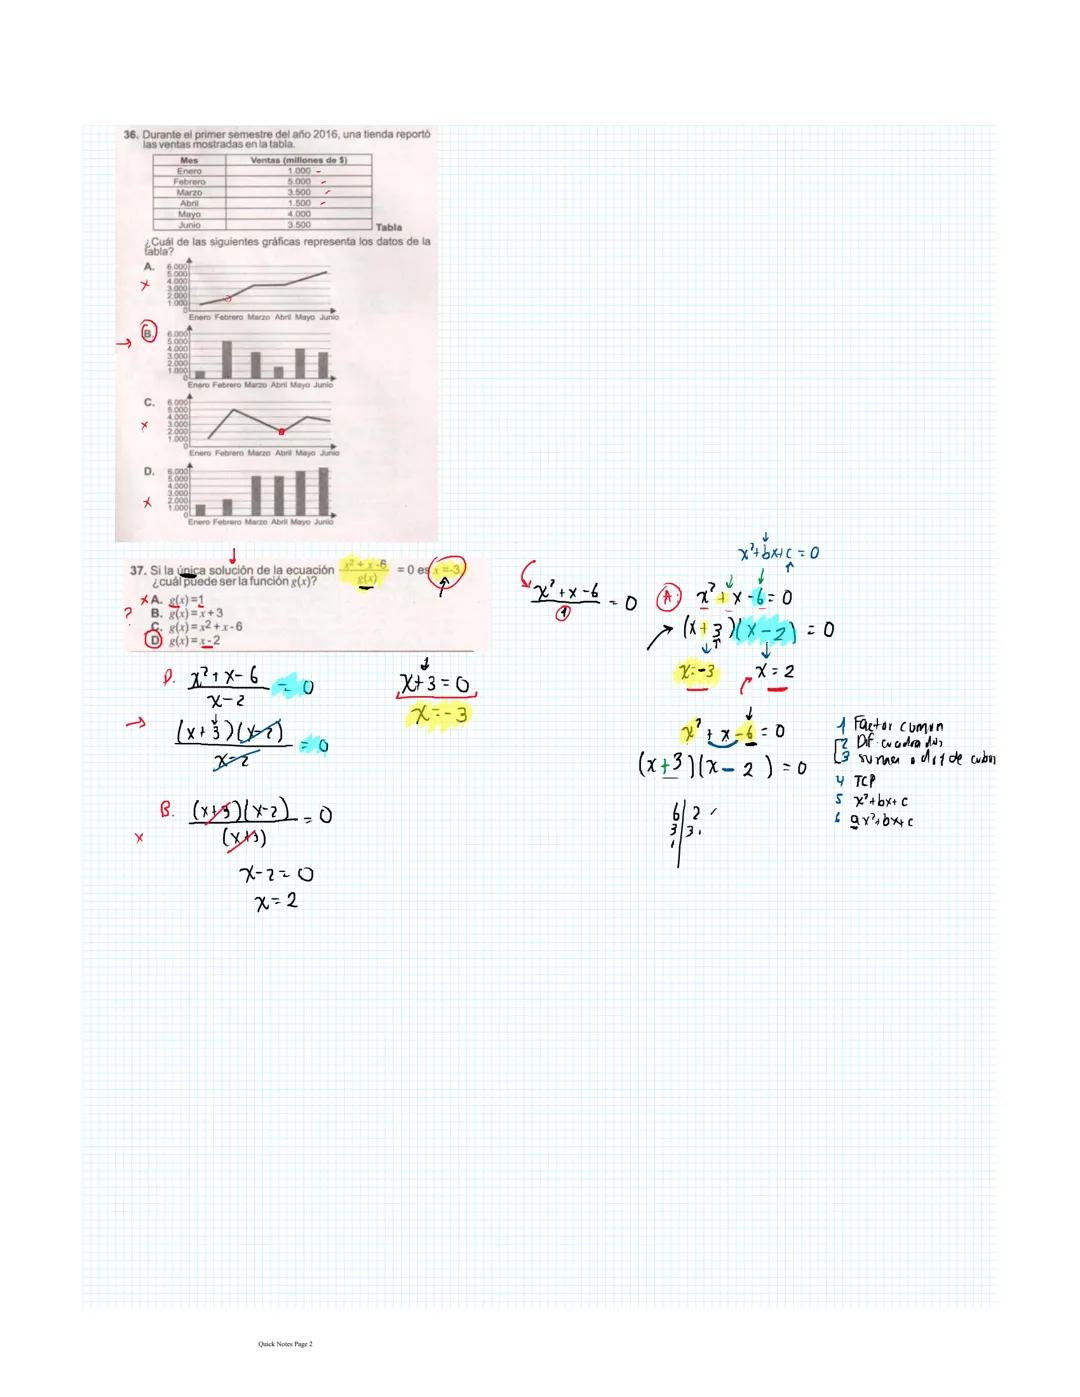 36. Durante el primer semestre del año 2016, una tienda reportó
las ventas mostradas en la tabla.
Mes Ventas (millones de $)
Enero 1.000
Febrero 5.000
Marzo 3.500
Abril 1.500
Mayo 4.000
Junio 3.500
Tabla
¿Cuál de las siguientes gráficas representa los datos de la
tabla?
A.
6.000
5.000
4.000
3.000
2.000
1.000
0
Enero Febrero Marzo Abril Mayo Junio
B.
6.000
5.000
4.000
3.000
2.000
1.000
0
Enero Febrero Marzo Abril Mayo Junio
C.
6.000
5.000
4.000
3.000
2.000
1.000
0
Enero Febrero Marzo Abril Mayo Junio
D.
6.000
5.000
4.000
3.000
2.000
1.000
0
Enero Febrero Marzo Abril Mayo Junio
37. Si la única solución de la ecuación (x² + x - 6)/g(x) = 0 es x = -3,
¿cuál puede ser la función g(x)?
x A. g(x) = 1
? B. g(x) = x + 3
C. g(x) = x² + x - 6
D g(x) = x - 2
D. x² + x - 6 / x - 2 = 0
(x + 3)(x - 2) / x - 2 = 0
x + 3 = 0
x = -3
B. (x+3)(x-2) / (x+3) = 0
x
x - 2 = 0
x = 2
x² + x - 6 / 1 = 0
x² + bx + c = 0
A. x² + x - 6 = 0
(x + 3)(x - 2) = 0
x = -3 x = 2
x² + x - 6 = 0
(x + 3)(x - 2) = 0
6 | 2
3 | 3
1
1 Factor comun
2 Dif. cuadrados
3 suma o dif de cubos
4 TCP
5 x² + bx + c
6 ax² + bx + c
Quick Notes Page 2